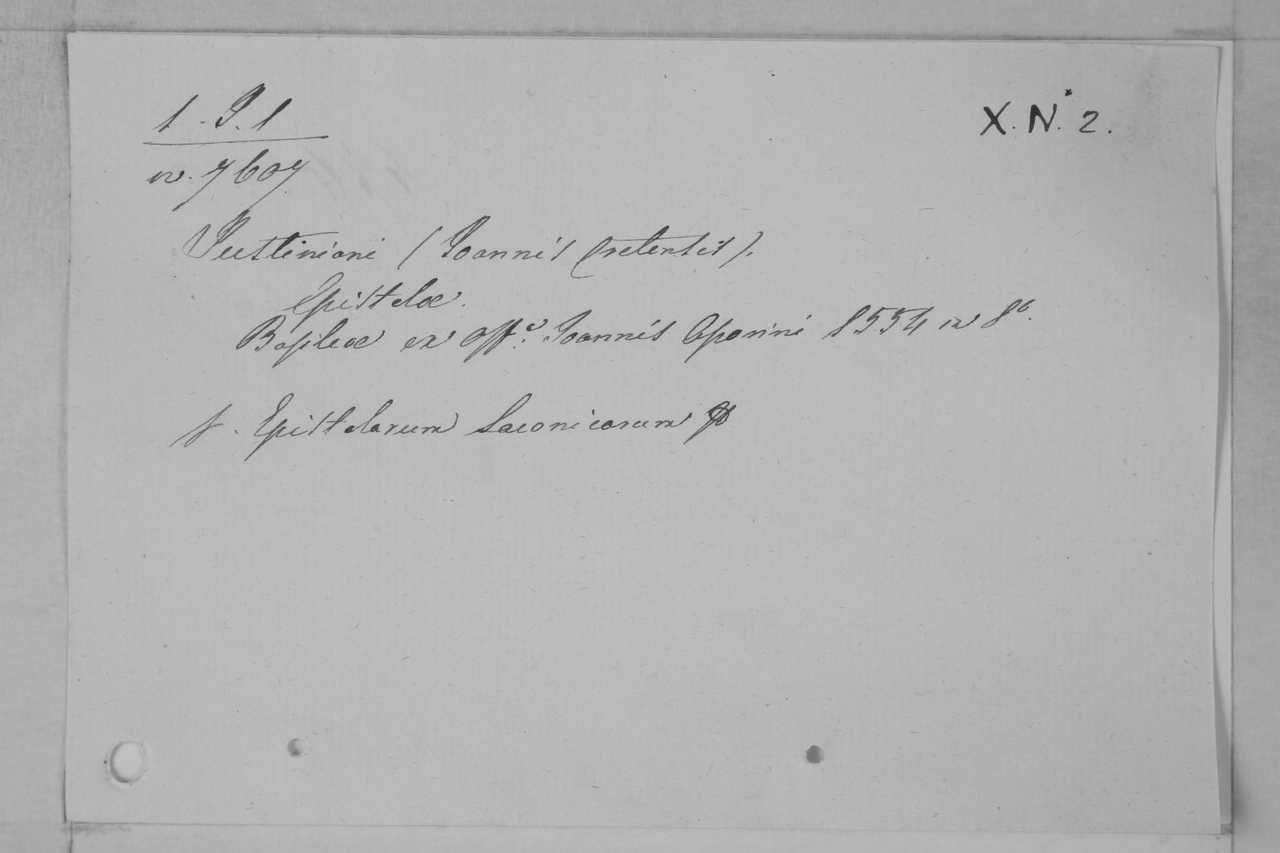 1. I. 1
X. N. 2.
n. 7607
Justiniani (Joannis Cretensis).
Epistolæ.
Basileæ ex off.ª Joannis Oporini 1554 in 8º.
f. Epistolarum Laconicarum